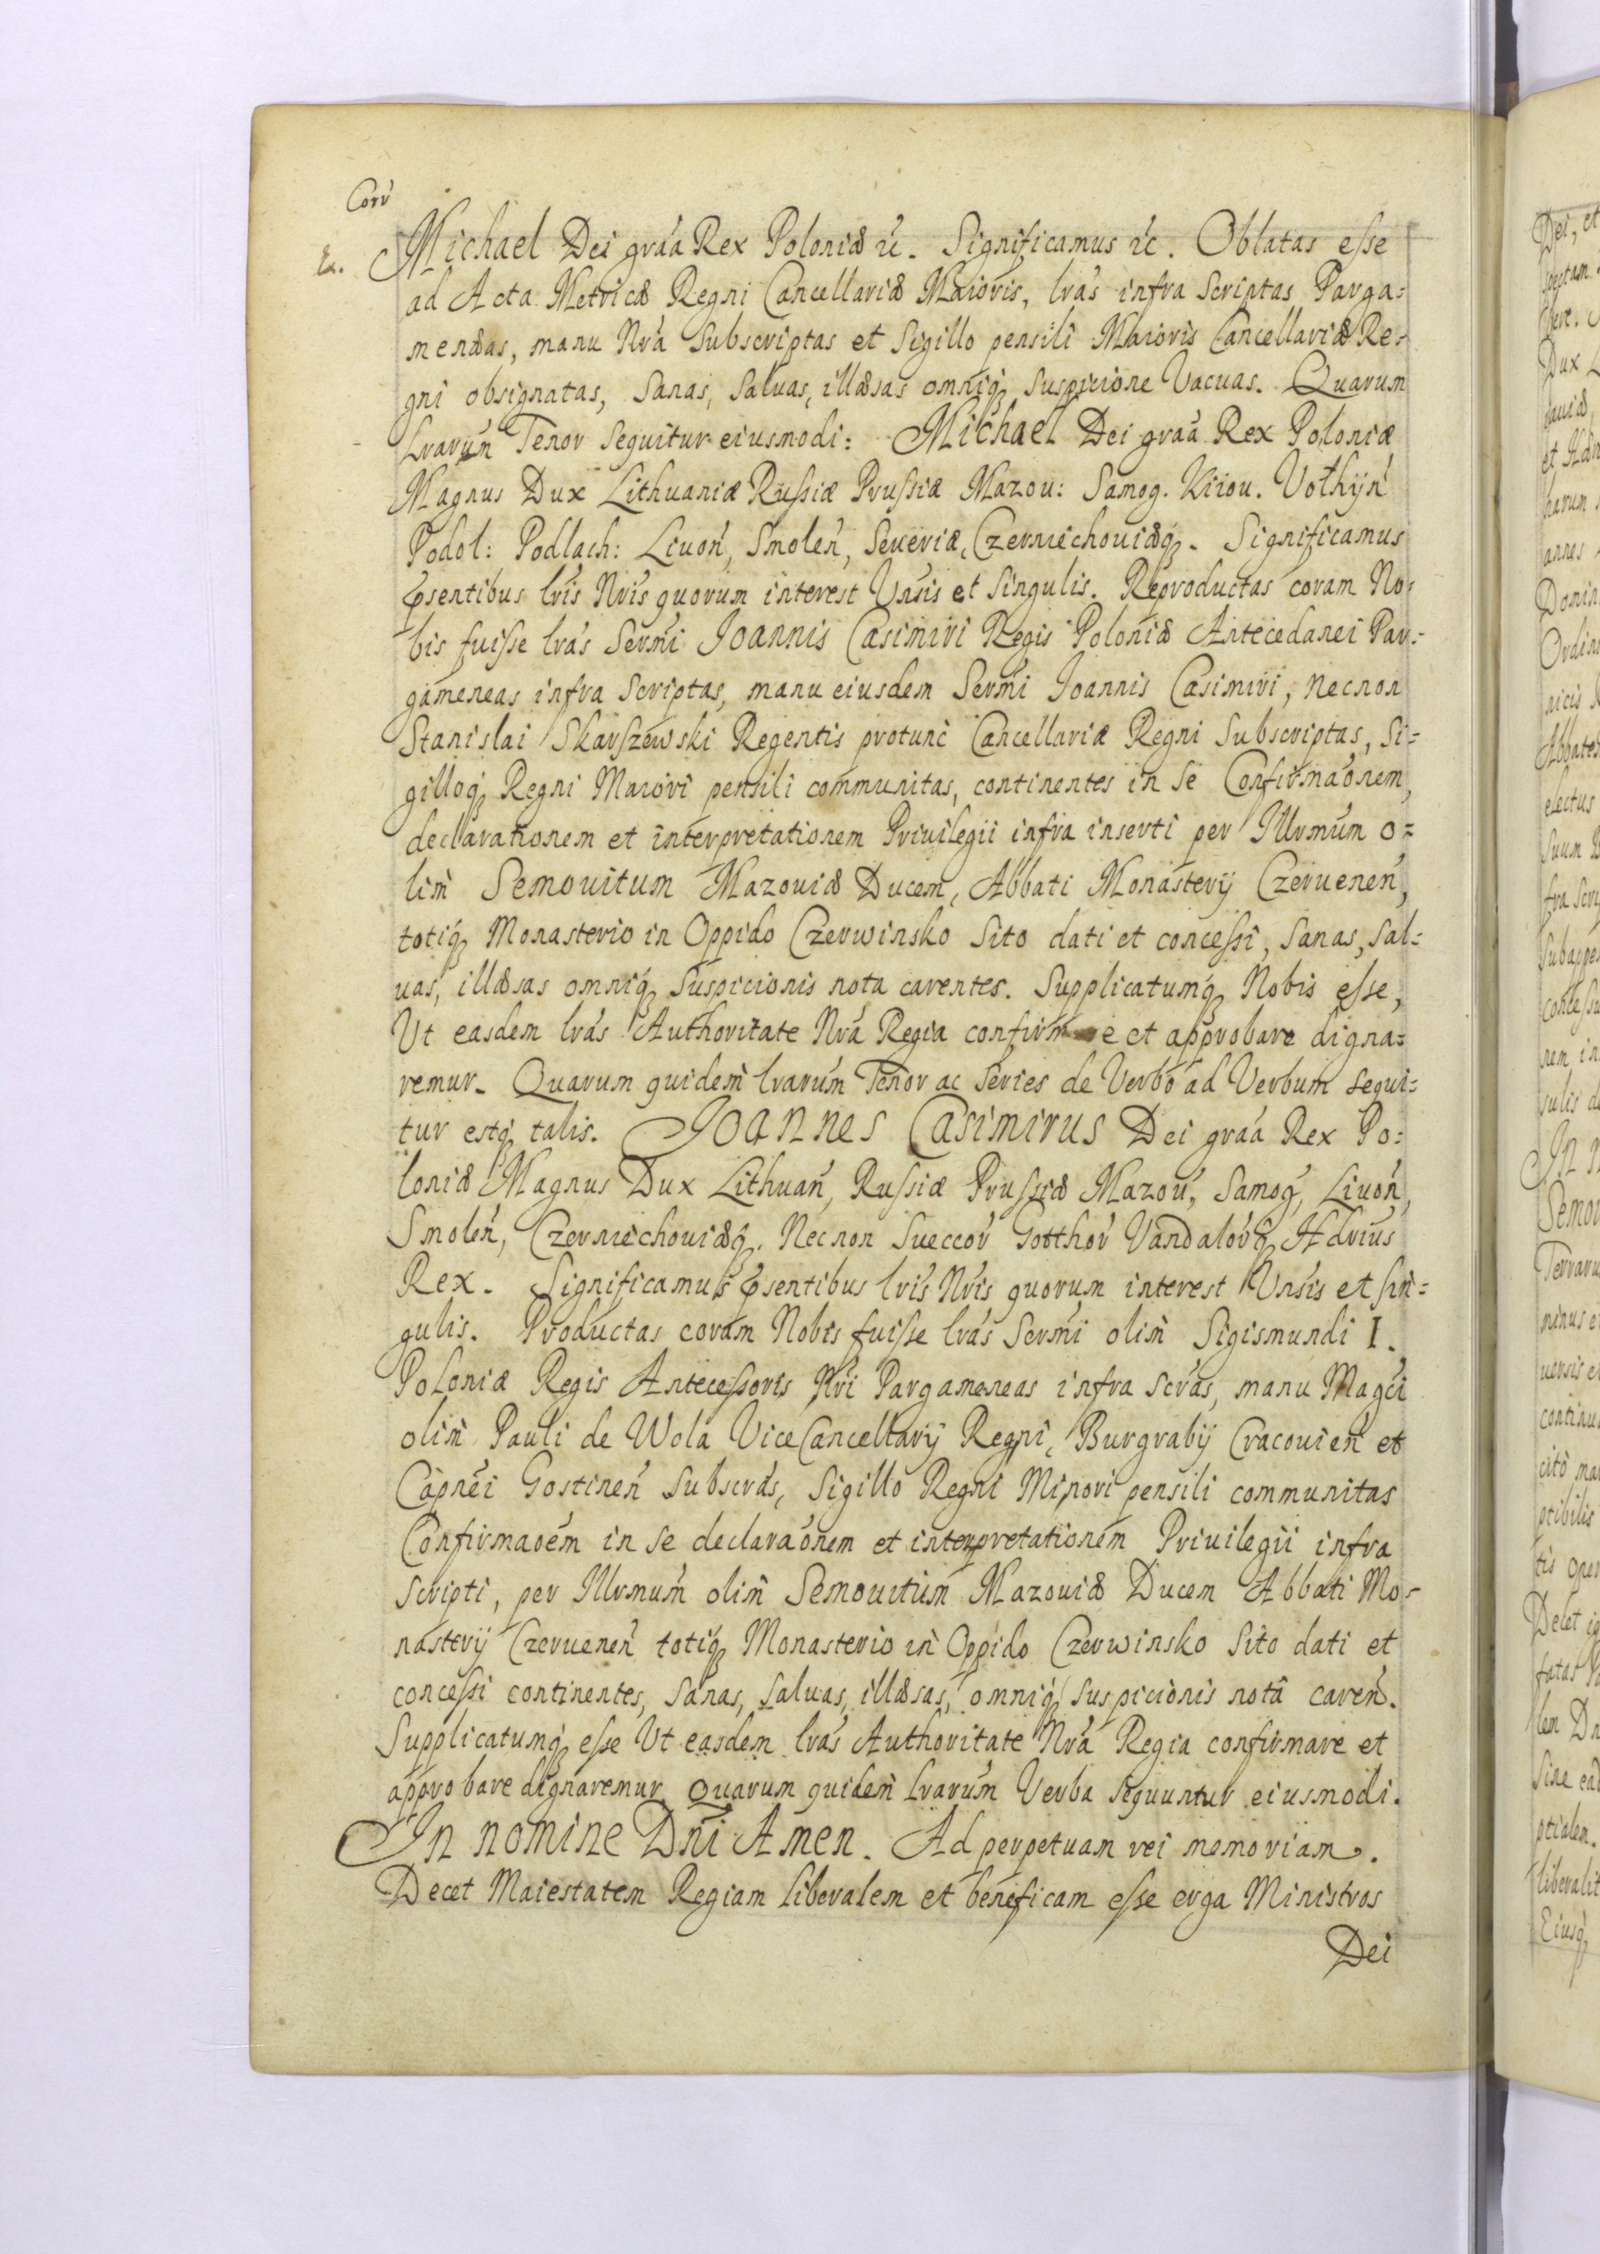 Corr
Ex.
Michael Dei gráa Rex Poloniæ &c. Significamus &c. Oblatas esse
ad Acta Metricæ Regni Cancellariæ Maioris, lrás infra scriptas Parga=
menæas, manu Nrá Subscriptas et Sigillo pensili Maioris Cancellariæ Re=
gni obsignatas, Sanas, Saluas, illæsas omniq́ Suspicione Vacuas. Quarum
Lrarum Tenor Sequitur eiusmodi: Michael Dei gráa Rex Poloniæ
Magnus Dux Lithuaniæ Russiæ Prussiæ Mazou: Samog. Kiiou. Volhyń
Podol: Podlach: Liuoń, Smoleń, Seueriæ, Czerniechouiæq́. Significamus
Pśentibus lris Nris quorum interest Vnśis et Singulis. Reproductas coram No=
bis fuisse lrás Sermi Joannis Casimiri Regis Poloniæ Antecedanei Par=
gameneas infra Scriptas, manu eiusdem Sermi Joannis Casimiri, necnon
Stanislai Skarszewski Regentis protunc Cancellariæ Regni Subscriptas, Si=
gilloq́ Regni Maiori pensili communitas, continentes in Se Confirmáonem,
declarationem et interpretationem Priuilegii infra inserti per Illrmum o=
lim Semouitum Mazouiæ Ducem, Abbati Monasterÿ Czerueneń,
totiq́ Monasterio in Oppido Czerwinsko Sito dati et concessi, Sanas, Sal=
uas, illæsas omniq́ Suspicionis nota carentes. Supplicatumq́ Nobis esse,
Vt easdem lrás Authoritate Nrá Regia confirm e et approbare digna=
remur. Quarum quidem lrarum Tenor ac Series de Verbo ad Verbum sequi=
tur estq́ talis. Joannes Casimirus Dei gráa Rex Po=
loniæ Magnus Dux Lithuań, Russiæ Prussiæ Mazou, Samog, Liuoń,
Smoleń, Czerniechouiæq́. Necnon Sueccor Gotthor Vandalorq́ Hdrius
Rex. Significamus Pśentibus lris Nris quorum interest Vnśis et Sin=
gulis. Productas coram Nobis fuisse lrás Sermi olim Sigismundi I.
Poloniæ Regis Antecessoris Nri Pargameneas infra Scrás, manu Magci
olim Pauli de Wola ViceCancellarÿ Regni, Burgrabÿ Cracouień et
Capnei Gostineń Subscrás, Sigillo Regni Minori pensili communitas
Confirmaoém in se declaraónem et interpretationem Priuilegii infra
Scripti, per Illrmum olim Semouitum Mazouiæ Ducem Abbati Mo=
nasterÿ Czerueneń totiq́ Monasterio in Oppido Czerwinsko Sito dati et
concessi continentes, Sanas, Saluas, illæsas, omniq́ suspicionis notâ careń.
Supplicatumq́ esse Vt easdem lrás Authoritate Nrá Regia confirmare et
approbare dignaremur. Quarum quidem Lrarum Verba Sequuntur eiusmodi.
In nomine Dni Amen. Ad perpetuam rei memoriam.
Decet Maiestatem Regiam liberalem et beneficam esse erga Ministros
Dei